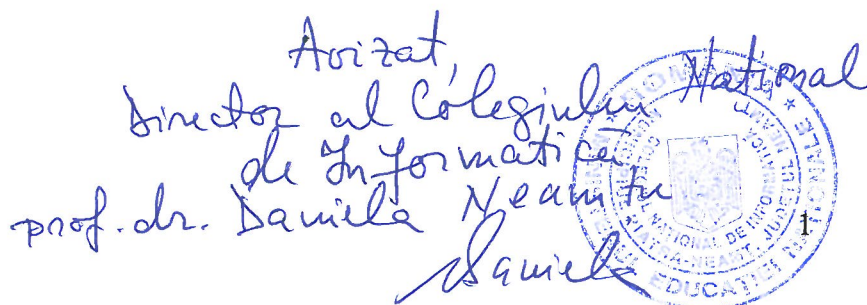 Avizat,
Director al Colegiului Național
de Informatică
prof. dr. Daniela Neamțu
Daniela
ROMÂNIA
MINISTERUL EDUCAȚIEI NAȚIONALE
COLEGIUL NAȚIONAL DE INFORMATICĂ
PIATRA-NEAMȚ, JUDEȚUL NEAMȚ
1